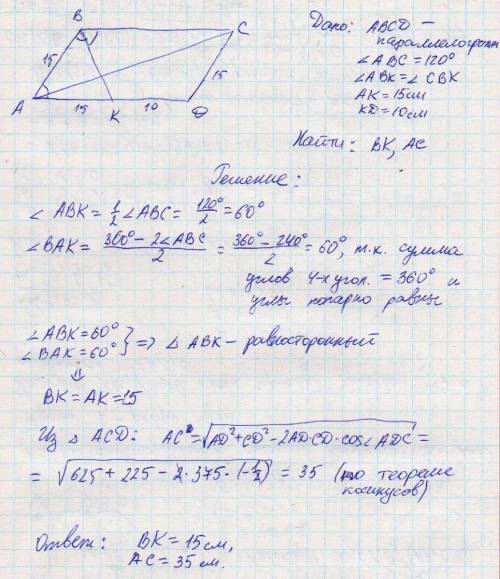 B
C
15
15
A
15
K
10
D
Дано: ABCD —
параллелограмм
∠ABC = 120°
∠ABK = ∠CBK
AK = 15 см
KD = 10 см
Найти: BK, AC
Решение:
∠ ABK = 1/2 ∠ABC = 120°/2 = 60°
∠BAK = (360° − 2∠ABC)/2 = (360° − 240°)/2 = 60°, т.к. сумма
углов 4-х угол. = 360° и
углы попарно равны
∠ABK = 60°
∠BAK = 60° } => △ ABK – равносторонний
⇓
BK = AK = 15
Из △ ACD: AC = √(AD² + CD² − 2AD·CD·cos∠ADC) =
= √(625 + 225 − 2·375·(−1/2)) = 35 (по теореме
косинусов)
Ответ: BK = 15 см,
AC = 35 см.